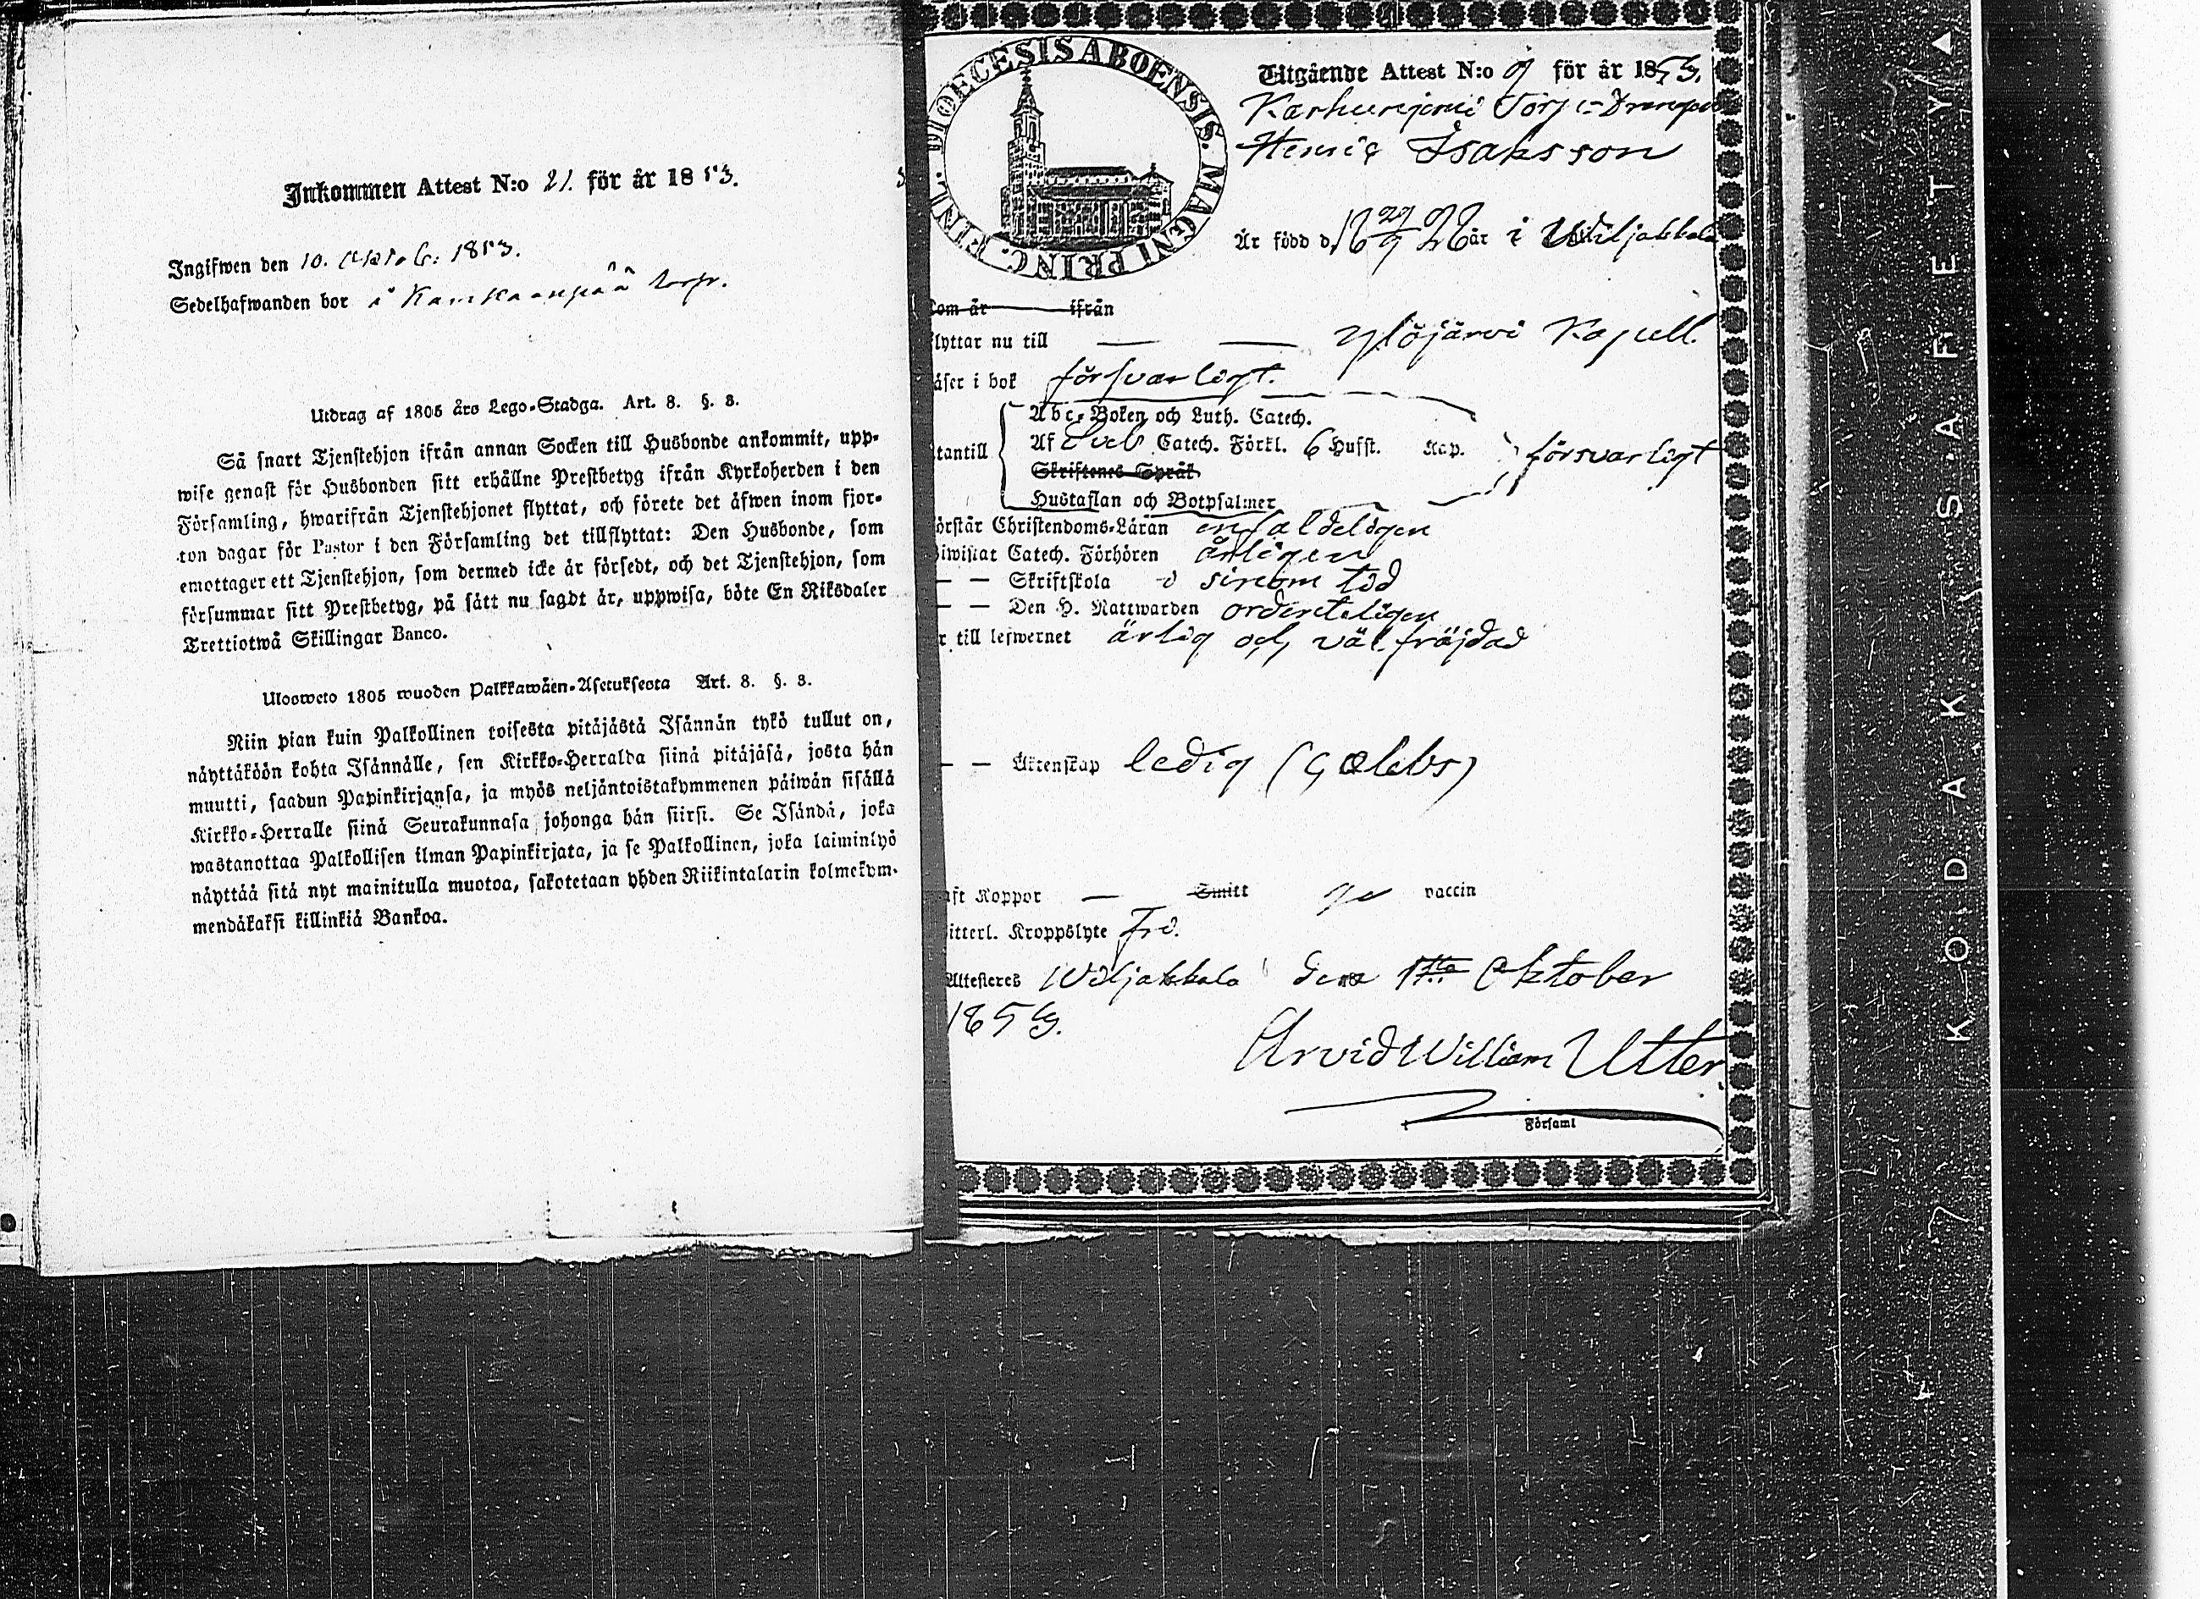 Inkommen Attest N:o 21. för år 1853.
Ingifwen den 10. Oktob. 1853.
Sedelhafwanden bor i Kankaanpää torp.
Utdrag af 1805 års Lego-Stadga. Art. 8. §. 3.
Så snart Tjenstehjon ifrån annan Socken till Husbonde ankommit, upp-
wise genast för Husbonden sitt erhållne Prestbetyg ifrån Kyrkoherden i den
Församling, hwarifrån Tjenstehjonet flyttat, och förete det äfwen inom fjor-
ton dagar för Pastor i den Församling det tillflyttat: Den Husbonde, som
emottager ett Tjenstehjon, som dermed icke är försedt, och det Tjenstehjon, som
försummar sitt Prestbetyg, på sätt nu sagdt är, uppwisa, böte En Riksdaler
Trettiotwå Skillingar Banco.
Ulosweto 1805 wuoden Palkkawäen-Asetuksesta Art. 8. §. 3.
Niin pian kuin Palkollinen toisesta pitäjästä Isännän tykö tullut on,
näyttäköön kohta Isännälle, sen Kirkko-Herralda siinä pitäjäsä, josta hän
muutti, saadun Papinkirjansa, ja myös neljäntoistakymmenen päiwän sisällä
Kirkko-Herralle siinä Seurakunnasa johonga hän siirsi. Se Isändä, joka
wastanottaa Palkollisen ilman Papinkirjata, ja se Palkollinen, joka laiminlyö
näyttää sitä nyt mainitulla muotoa, sakotetaan yhden Riikintalarin kolmekym-
mendäkaksi killinkiä Bankoa.
DIOECESIS ABOENSIS. MAGNI PRINC. FINL.
Utgående Attest N:o 9 för år 1853.
Karhunjemi Torp
Henric Isaksson
Är född d. 18 29/9 28 år i Wiljakkala
kom år ifrån
flyttar nu till — — Ylöjärvi Kapell.
äser i bok försvarligt.
Abc-Boken och Luth. Catech.
tantill Af Sveb Catech. Förkl. 6 Hufst. Kap. försvarligt
Skriftenes Språk
Hustaflan och Botpsalmer
örstår Christendoms-Läran enfaldeligen
Biwistat Catech. Förhören årligen
— — Skriftskola i sinom tid
— — Den H. Nattwarden ordenteligen
r till lefwernet ärlig och väl fräjdad
— — Äktenskap ledig (Cælebs)
aft Koppor — Smitt ge vaccin
itterl. Kroppslyte fri.
Attesteres Wiljakkala den 1sta Oktober
1853.
Arvid William Utter.
Församl
KODAK SAFETY ▲